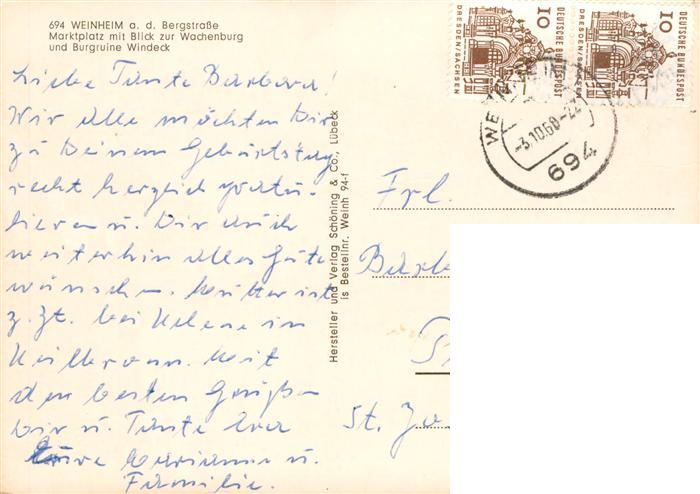 694 WEINHEIM a. d. Bergstraße
Marktplatz mit Blick zur Wachenburg
und Burgruine Windeck
Liebe Tante Barbara!
Wir alle möchten Dir
zu Deinem Geburtstag
recht herzlich gratu-
lieren u. Dir auch
weiterhin alles Gute
wünschen. Mutter ist
z. Zt. bei Helene in
Heilbronn. Mit
den besten Grüßen
Dir u. Tante Eva
Eure Marianne u.
Familie.
Hersteller und Verlag Schöning & Co., Lübeck
is Bestellnr. Weinh 94-f
DEUTSCHE BUNDESPOST
10
DRESDEN/SACHSEN
DEUTSCHE BUNDESPOST
10
DRESDEN/SACHSEN
WE
-3.10.68-22
694
Frl.
Barb
St. Jo